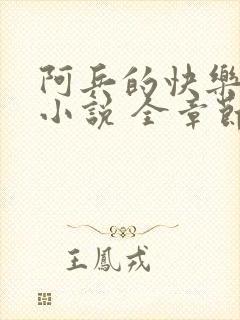 阿兵的快樂
小說 全章節
王鳳戎